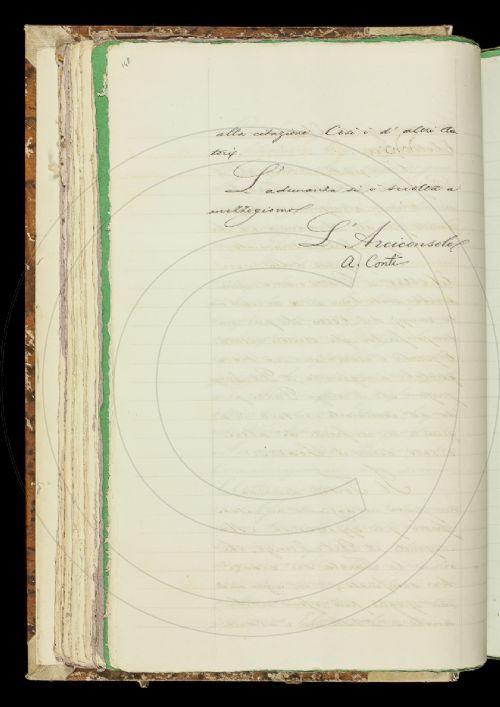 148
alla citazione. Così i d' altri Au
tori.
L' adunanza si è sciolta a
mezzogiorno.
L' Arciconsolo
A. Conti